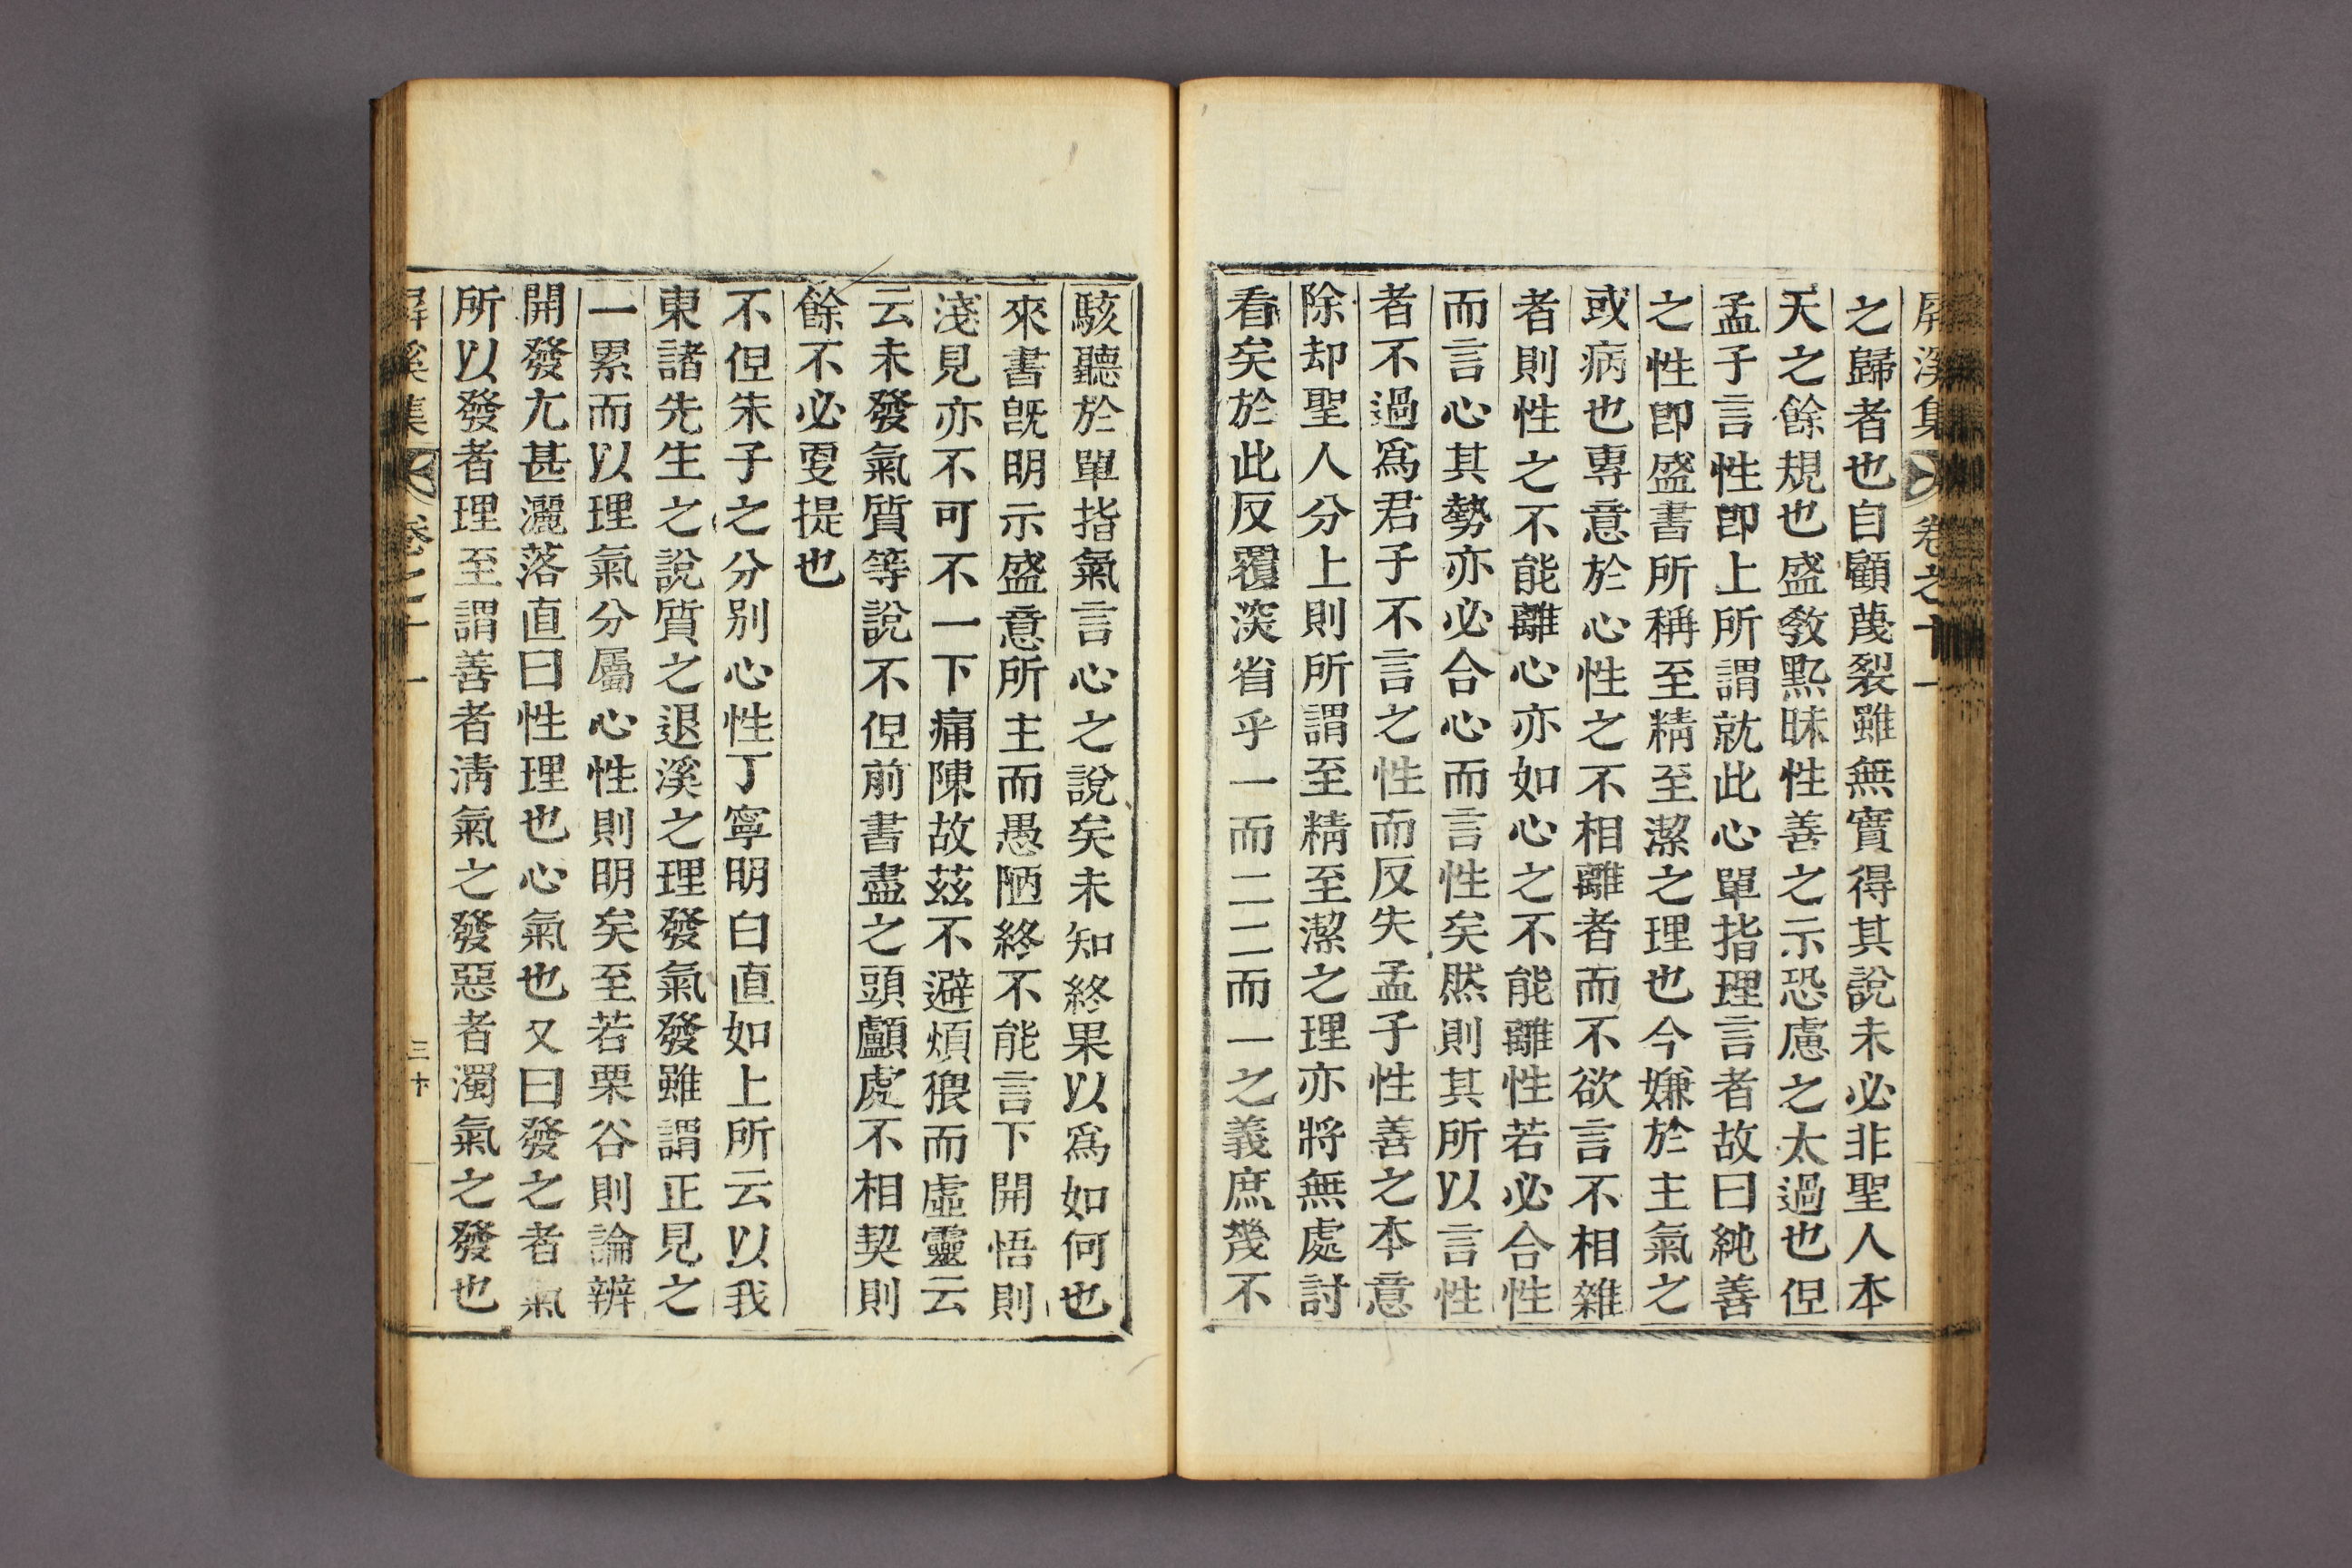 屛溪集 卷之十一
之歸者也自顧蔑裂雖無實得其說未必非聖人本
天之餘規也盛敎㸃昧性善之示恐慮之太過也但
孟子言性卽上所謂就此心單指理言者故曰純善
之性卽盛書所稱至精至潔之理也今嫌於主氣之
或病也專意於心性之不相離者而不欲言不相雜
者則性之不能離心亦如心之不能離性若必合性
而言心其勢亦必合心而言性矣然則其所以言性
者不過爲君子不言之性而反失孟子性善之本意
除却聖人分上則所謂至精至潔之理亦將無處討
看矣於此反覆深省乎一而二二而一之義庶幾不
駭聽於單指氣言心之說矣未知終果以爲如何也
來書旣明示盛意所主而愚陋終不能言下開悟則
淺見亦不可不一下痛陳故玆不避煩猥而虛靈云
云未發氣質等說不但前書盡之頭顱處不相契則
餘不必更提也
不但朱子之分別心性丁寧明白直如上所云以我
東諸先生之說質之退溪之理發氣發雖謂正見之
一累而以理氣分屬心性則明矣至若栗谷則論辨
開發尤甚灑落直曰性理也心氣也又曰發之者氣
所以發者理至謂善者淸氣之發惡者濁氣之發也
屛溪集 卷之十一 三十